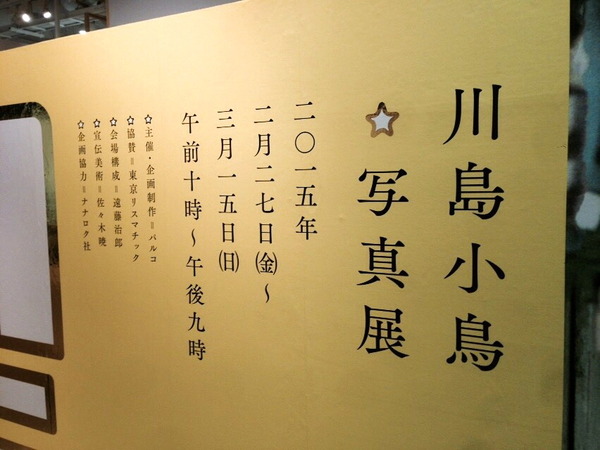 川島小鳥
☆写真展
二〇一五年
二月二七日㈮〜
三月一五日㈰
午前十時〜午後九時
☆主催・企画制作=パルコ
☆協賛=東京リスマチック
☆会場構成=遠藤治郎
☆宣伝美術=佐々木暁
☆企画協力=ナナロク社